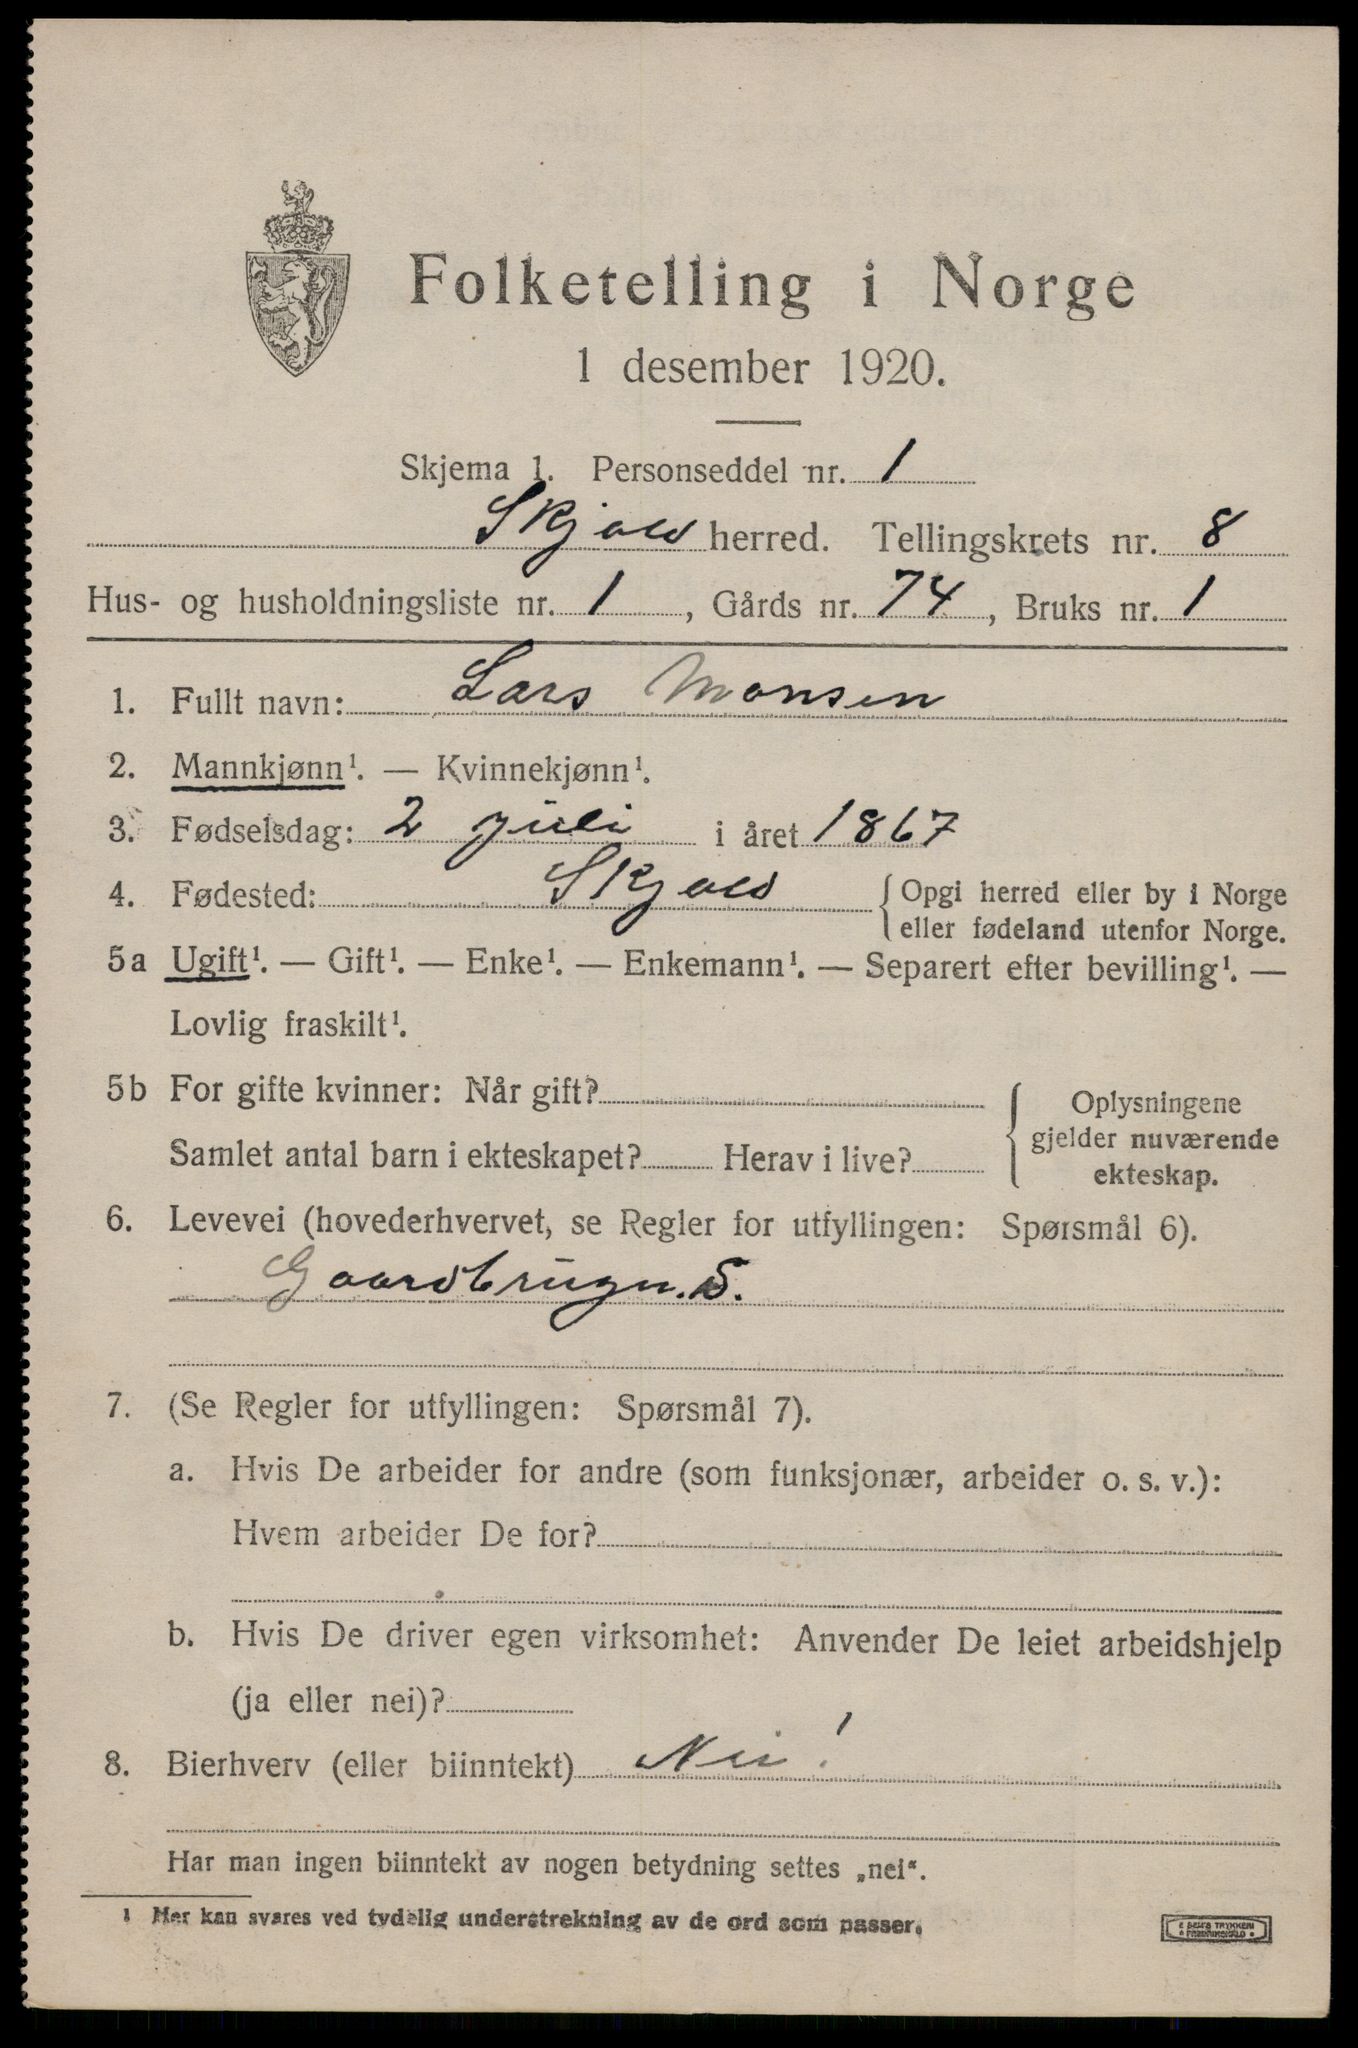 Folketelling i Norge
1 desember 1920.
Skjema 1. Personseddel nr. 1
Skjold herred. Tellingskrets nr. 8
Hus- og husholdningsliste nr. 1, Gårds nr. 74, Bruks nr. 1
1. Fullt navn: Lars Monsen
2. Mannkjønn¹. — Kvinnekjønn¹.
3. Fødselsdag: 2 juli i året 1867
4. Fødested: Skjold { Opgi herred eller by i Norge
eller fødeland utenfor Norge.
5a Ugift¹. — Gift¹. — Enke¹. — Enkemann¹. — Separert efter bevilling¹. —
Lovlig fraskilt¹.
5b For gifte kvinner: Når gift?
Samlet antal barn i ekteskapet? Herav i live?
Oplysningene
gjelder nuværende
ekteskap.
6. Levevei (hovederhvervet, se Regler for utfyllingen: Spørsmål 6).
Gaardbruger. S.
7. (Se Regler for utfyllingen: Spørsmål 7).
a. Hvis De arbeider for andre (som funksjonær, arbeider o. s. v.):
Hvem arbeider De for?
b. Hvis De driver egen virksomhet: Anvender De leiet arbeidshjelp
(ja eller nei)?
8. Bierhverv (eller biinntekt) Nei!
Har man ingen biinntekt av nogen betydning settes „nei“.
1 Her kan svares ved tydelig understrekning av de ord som passer.
E SEM'S TRYKKERI
• FREDRIKSHALD •